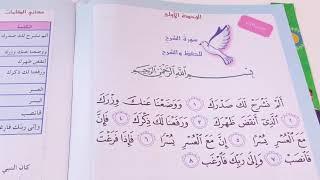 الوحدة الأولى
سورة الشرح
للحفظ والشرح
بِسْمِ اللَّهِ الرَّحْمَٰنِ الرَّحِيمِ
أَلَمْ نَشْرَحْ لَكَ صَدْرَكَ ١ وَوَضَعْنَا عَنكَ وِزْرَكَ
٢ الَّذِي أَنقَضَ ظَهْرَكَ ٣ وَرَفَعْنَا لَكَ ذِكْرَكَ ٤ فَإِنَّ
مَعَ الْعُسْرِ يُسْرًا ٥ إِنَّ مَعَ الْعُسْرِ يُسْرًا ٦ فَإِذَا فَرَغْتَ
فَانصَبْ ٧ وَإِلَىٰ رَبِّكَ فَارْغَب ٨
معاني الكلمات
الكلمة
ألم نشرح لك صدرك
ووضعنا عنك وزرك
أنقض ظهرك
ورفعنا لك ذكرك
العسر
فانصب
وإلى ربك فارغب
كان النبي